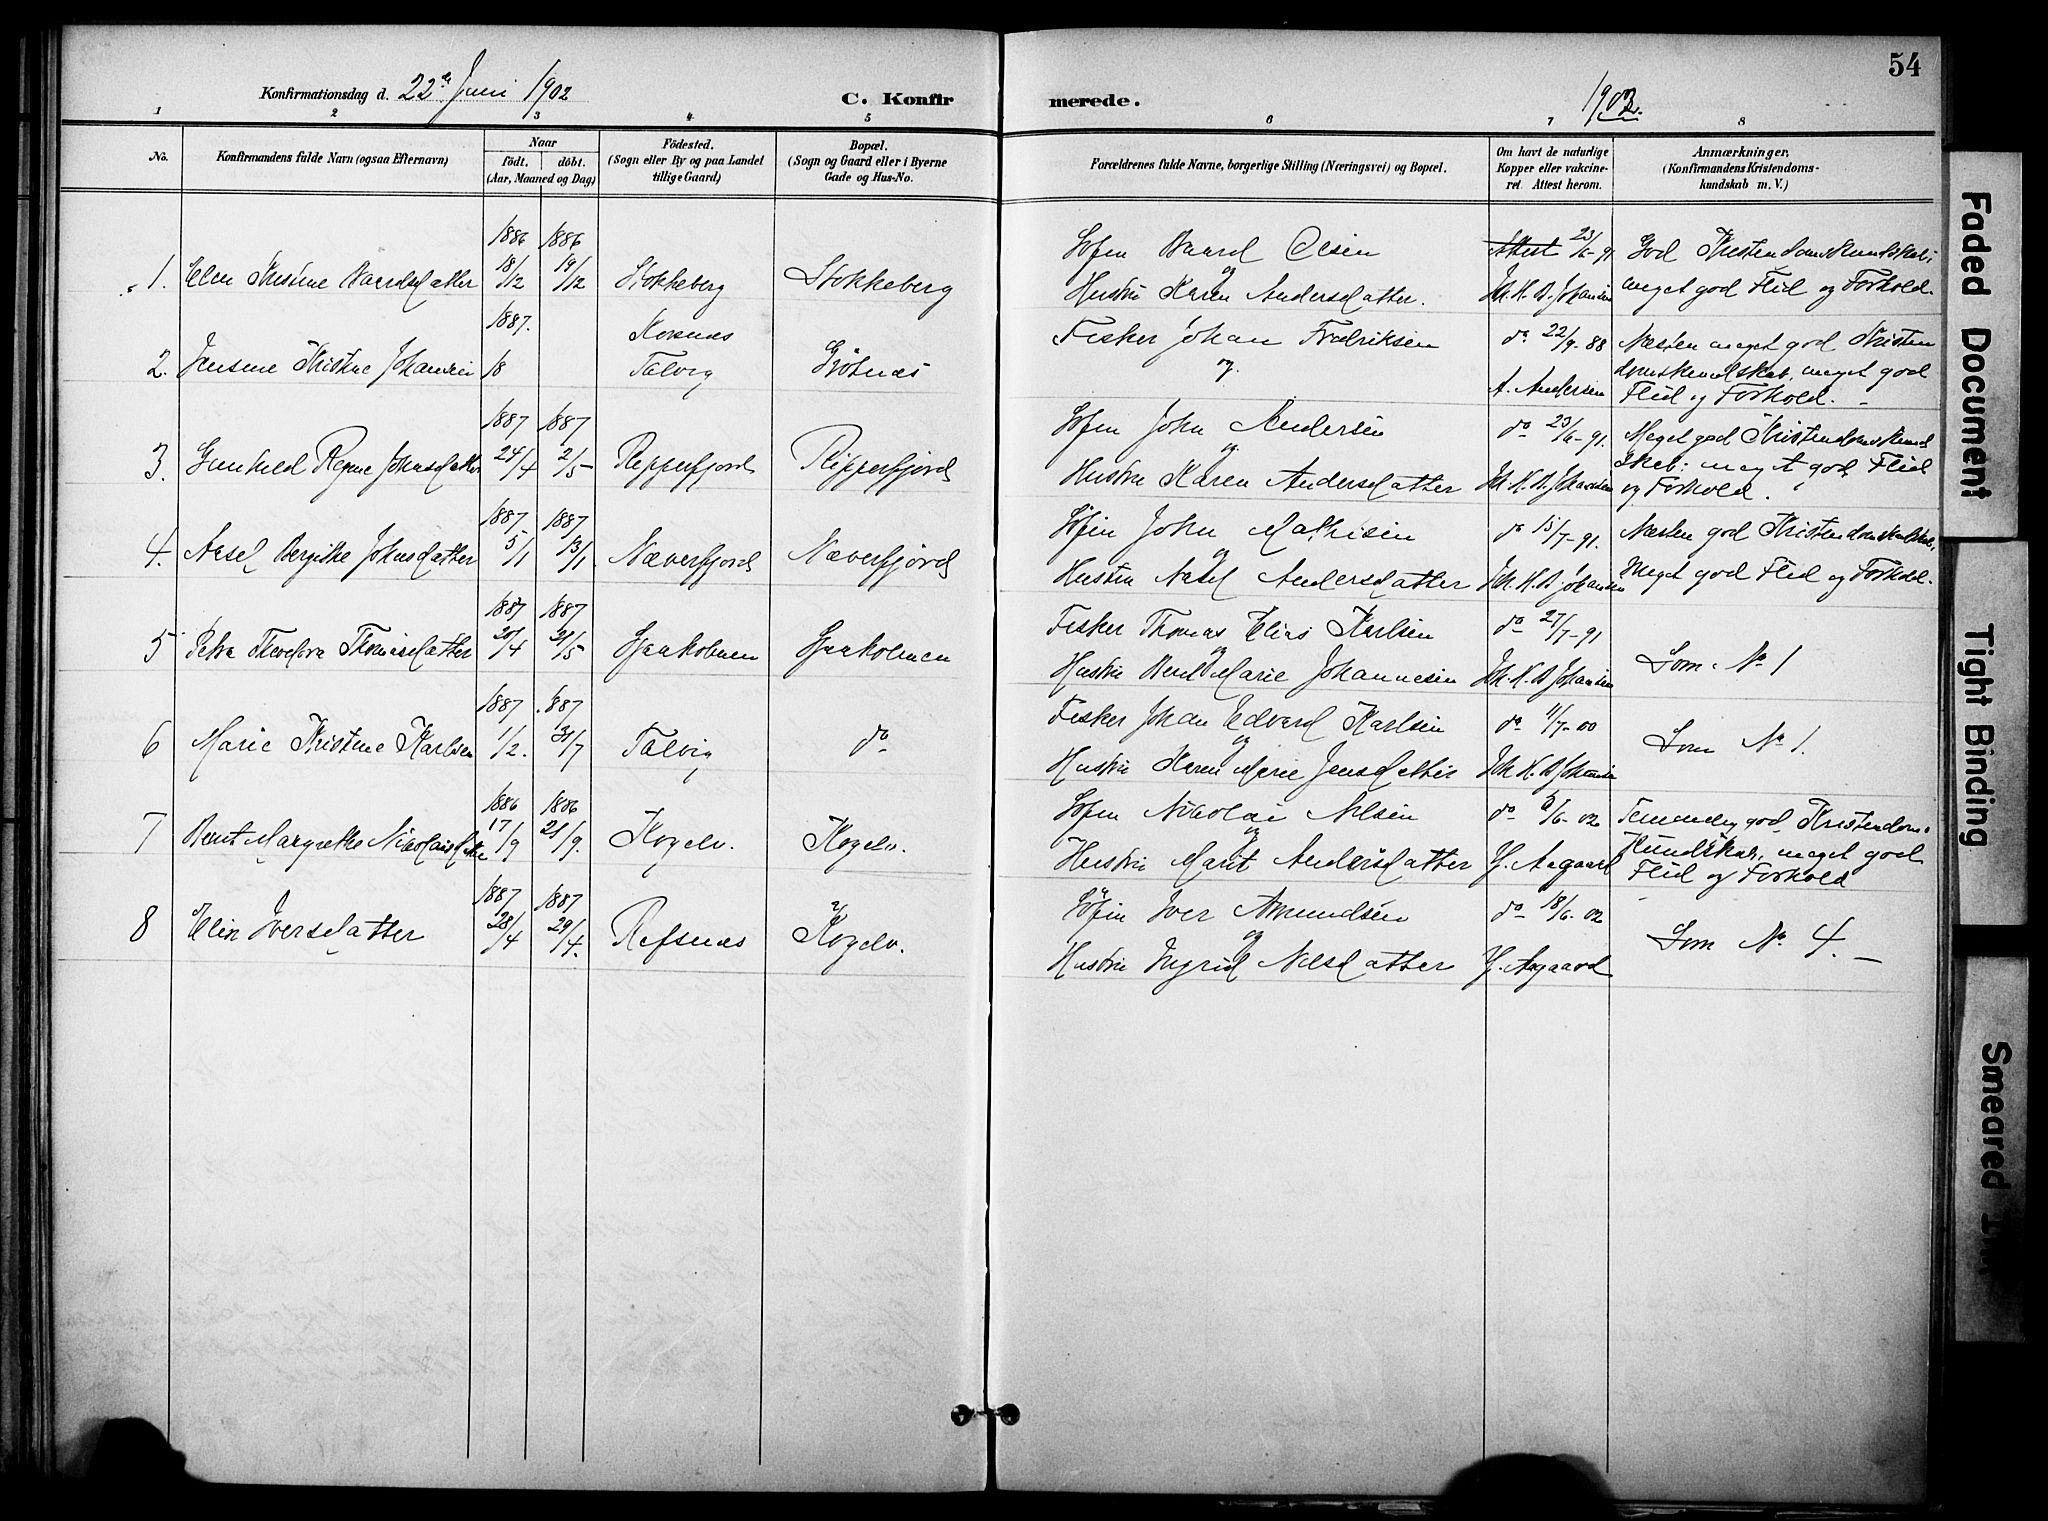 54
Konfirmationsdag d. 22de Juni 1902
C. Konfir
merede.
1902.
1 2 3 4 5 6 7 8
No.
Konfirmandens fulde Navn (ogsaa Efternavn)
Naar
födt. döbt.
(Aar, Maaned og Dag)
Födested.
(Sogn eller By og paa Landet
tillige Gaard)
Bopæl.
(Sogn og Gaard eller i Byerne
Gade og Hus-No.
Forældrenes fulde Navne, borgerlige Stilling (Næringsvei) og Bopæl.
Om havt de naturlige
Kopper eller vakcine-
ret. Attest herom.
Anmærkninger.
(Konfirmandens Kristendoms-
kundskab m. V.)
1886 1886
1. Elen Kristine Baardsdatter 18/12 19/12 Stokkeberg Stokkeberg
Söfin Baard Olsen Attest 23/6-91 God Kristendomskundskab;
og
Hustru Karen Andersdatter. Joh. K. B. Johansen meget god Flid og Forhold.
1887. Korsnes
2. Jensine Kristine Johansen 18 Talvig
Fisker Johan Fredriksen do 22/9-88 Næsten meget god Kristen
og A. Andersen domskundskab, meget god
Flid og Forhold.
1887 1887
3. Gunhild Regine Johnsdatter 24/4 2/5 Repperfjord Repperfjord
Söfin John Andersen do 23/6-91. Meget god Kristendomskund
og
Hustru Karen Andersdatter Joh. K. B. Johansen skab; meget god Flid
og Forhold.
1887 1887
4. Aasel Bergithe Johnsdatter 5/1 13/1 Næverfjord Næverfjord
Söfin John Mathisen do 15/7-91. Næsten god Kristendomskundskab,
og
Hustru Aasel Andersdatter Joh. K. B. Johansen Meget god Flid og Forhold.
1887 1887
5 Petra Theodora Thomasdatter 20/4 31/5 Gjaaholmen Gjaaholmen
Fisker Thomas Elias Karlsen do 27/7-91
og
Hustru Berit Marie Johannesen Joh. K. B. Johansen Som No 1
1887 1887
6 Marie Kristine Karlsen 1/2. 31/7 Talvig do
Fisker Johan Edvard Karlsen do 11/7-00
og
Hustru Karen Marie Jensdatter Joh. K. B. Johansen Som No 1.
1886 1886
7 Berit Margrethe Nikolaisdatter 17/9 21/9. Kogelv. Kogelv.
Söfin Nikolai Nilsen do 6/6-02 Temmelig god Kristendoms-
og
Hustru Marit Andersdatter H. Aagaard kundskab, meget god
Flid og Forhold
1887 1887
8 Elin Iversdatter 28/4 29/4. Refsnes Kogelv.
Söfin Iver Amundsen do 18/6-02
og
Hustru Ingrid Nilsdatter H. Aagaard Som No 4.
Faded Document
Tight Binding
Smeared